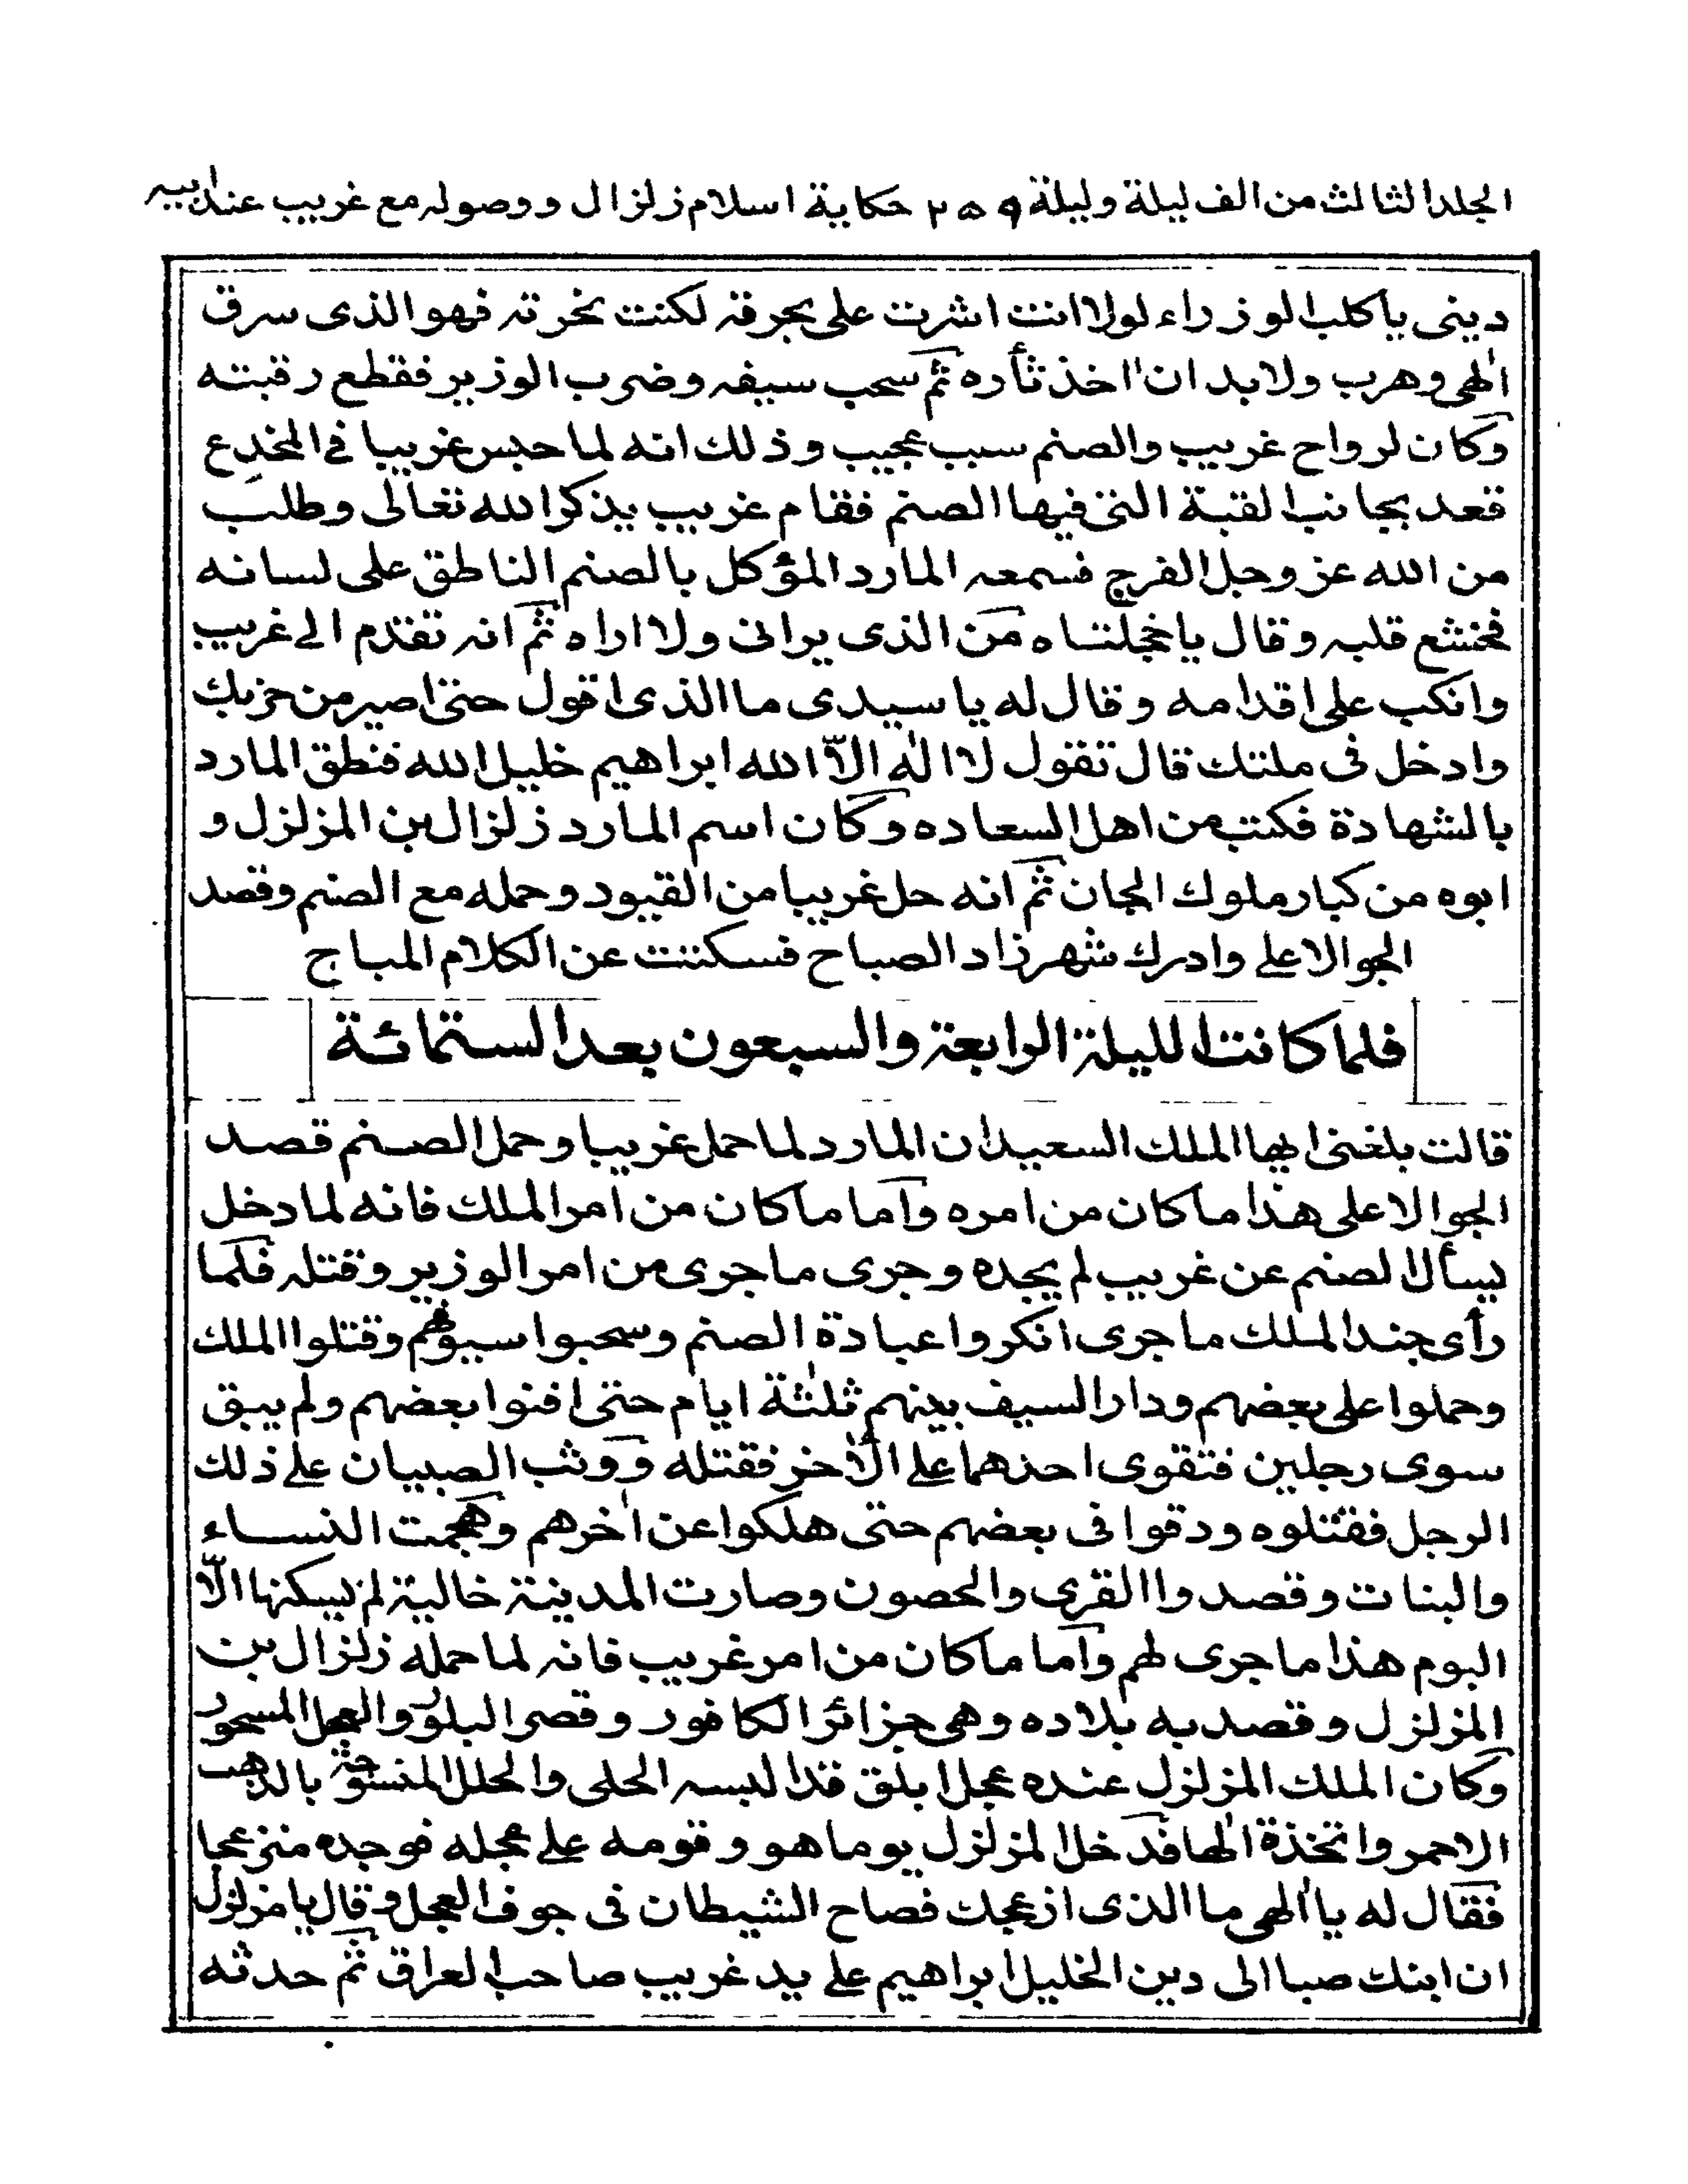 الجلد الثالث من الف ليلة وليلة ٢٥٩ حكاية اسلام زلزال ووصوله مع غريب عند ابيه
دينى يا كلب الوزراء لولا انت اشرت على بحرقه لكنت نحرته فهو الذى سرق
الٰهى وهرب ولابد ان اٰخذ ثأره ثم سحب سيفه وضرب الوزير فقطع رقبته
وكان لرواح غريب والصنم سبب عجيب وذلك انه لما حبس غريبا فى المخدع
قعد بجانب القبة التى فيها الصنم فقام غريب يذكر الله تعالى وطلب
من الله عز وجل الفرج فسمعه المارد المؤكل بالصنم الناطق على لسانه
فخشع قلبه وقال يا خجلتاه من الذى يرانى ولا اراه ثم انه تقدم الى غريب
وانكب على اقدامه وقال له يا سيدى ما الذى اقول حتى اصير من حزبك
وادخل فى ملتك قال تقول لا الٰه الّا الله ابراهيم خليل الله فنطق المارد
بالشهادة فكتب من اهل السعاده وكان اسم المارد زلزال بن المزلزل و
ابوه من كبار ملوك الجان ثم انه حل غريبا من القيود وحمله مع الصنم وقصد
الجو الاعلى وادرك شهرزاد الصباح فسكتت عن الكلام المباح
فلما كانت الليلة الرابعة والسبعون بعد الستمائة
قالت بلغنى ايها الملك السعيد ان المارد لما حمل غريبا وحمل الصنم قصد
الجو الاعلى هذا ما كان من امره وآما ما كان من امر الملك فانه لما دخل
يسأل الصنم عن غريب لم يجده وجرى ما جرى من امر الوزير وقتله فلما
رأى جند الملك ما جرى انكروا عبادة الصنم وسحبوا سيوفهم وقتلوا الملك
وحملوا على بعضهم ودار السيف بينهم ثلٰثة ايام حتى افنوا بعضهم ولم يبق
سوى رجلين فتقوى احدهما على الاٰخر فقتله ووثب الصبيان على ذلك
الرجل فقتلوه ودقوا فى بعضهم حتى هلكوا عن اٰخرهم وهجمت النساء
والبنات وقصدوا القرى والحصون وصارت المدينة خالية لم يسكنها الّا
البوم هذا ما جرى لهم وآما ما كان من امر غريب فانه لما حمله زلزال بن
المزلزل وقصد به بلاده وهى جزائر الكافور وقصر البلور والعجل المسحور
وكان الملك المزلزل عنده عجل ابلق قد البسه الحلى والحلل المنسوجة بالذهب
الاحمر واتخذة الٰها فدخل المزلزل يوما هو وقومه على عجله فوجده منزعجا
فقال له يا الٰهى ما الذى ازعجك فصاح الشيطان فى جوف العجل وقال يا مزلزل
ان ابنك صبا الى دين الخليل ابراهيم على يد غريب صاحب العراق ثم حدثه